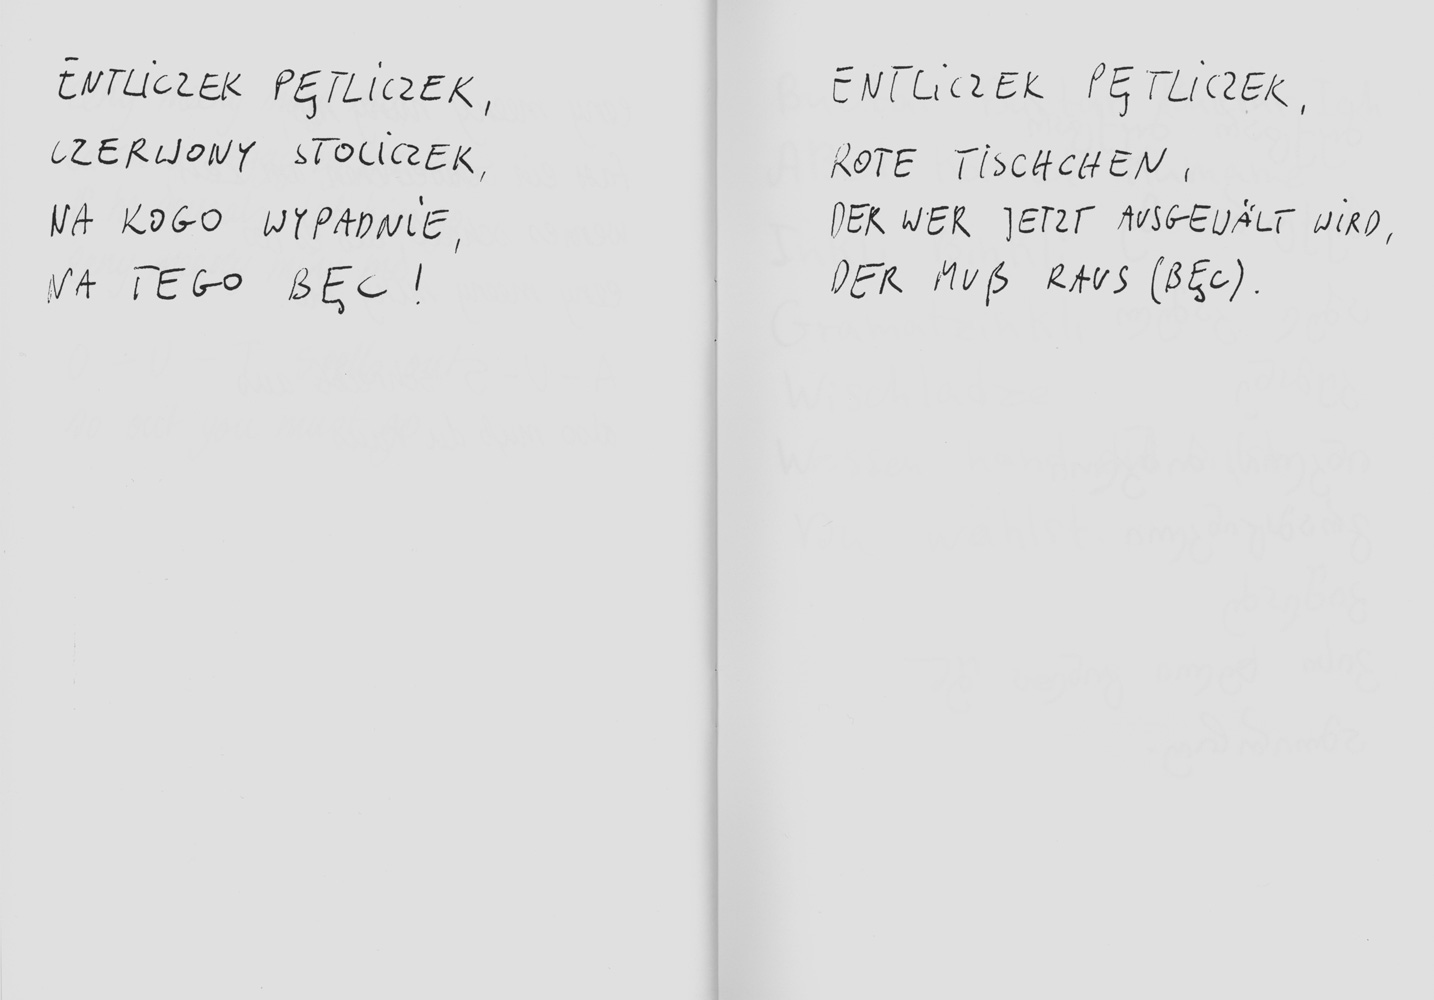 ENTLiCZEK PĘTLiCZEK,
CZERWONY STOLiCZEK,
NA KOGO WYPADNiE,
NA TEGO BĘC!
ENTLiCZEK PĘTLiCZEK,
ROTE TiSCHCHEN,
DER WER JETZT AUSGEWÄLT WiRD,
DER MUß RAUS (BĘC).